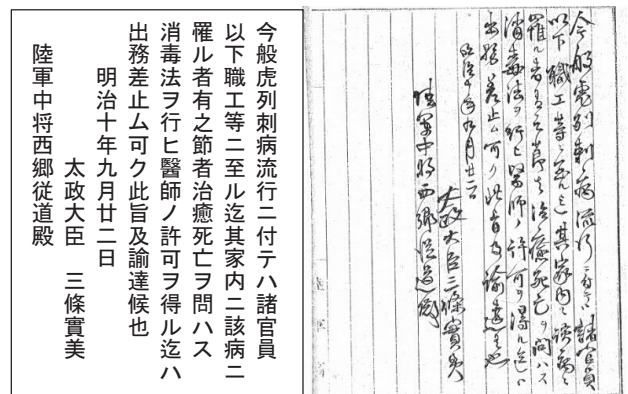 今般虎列刺病流行ニ付テハ諸官員
以下職工等ニ至ル迄其家内ニ該病ニ
罹ル者有之節者治癒死亡ヲ問ハス
消毒法ヲ行ヒ醫師ノ許可ヲ得ル迄ハ
出務差止ム可ク此旨及諭達候也
明治十年九月廿二日
太政大臣三條實美
陸軍中将西郷従道殿
今般虎列刺病流行ニ付テハ諸官員
以下職工等ニ至ル迄其家内ニ該病ニ
罹ル者有之節者治癒死亡ヲ問ハス
消毒法ヲ行ヒ醫師ノ許可ヲ得ル迄ハ
出務差止ム可ク此旨及諭達候也
明治十年九月廿二日
太政大臣 三條實美
陸軍中将西郷従道殿